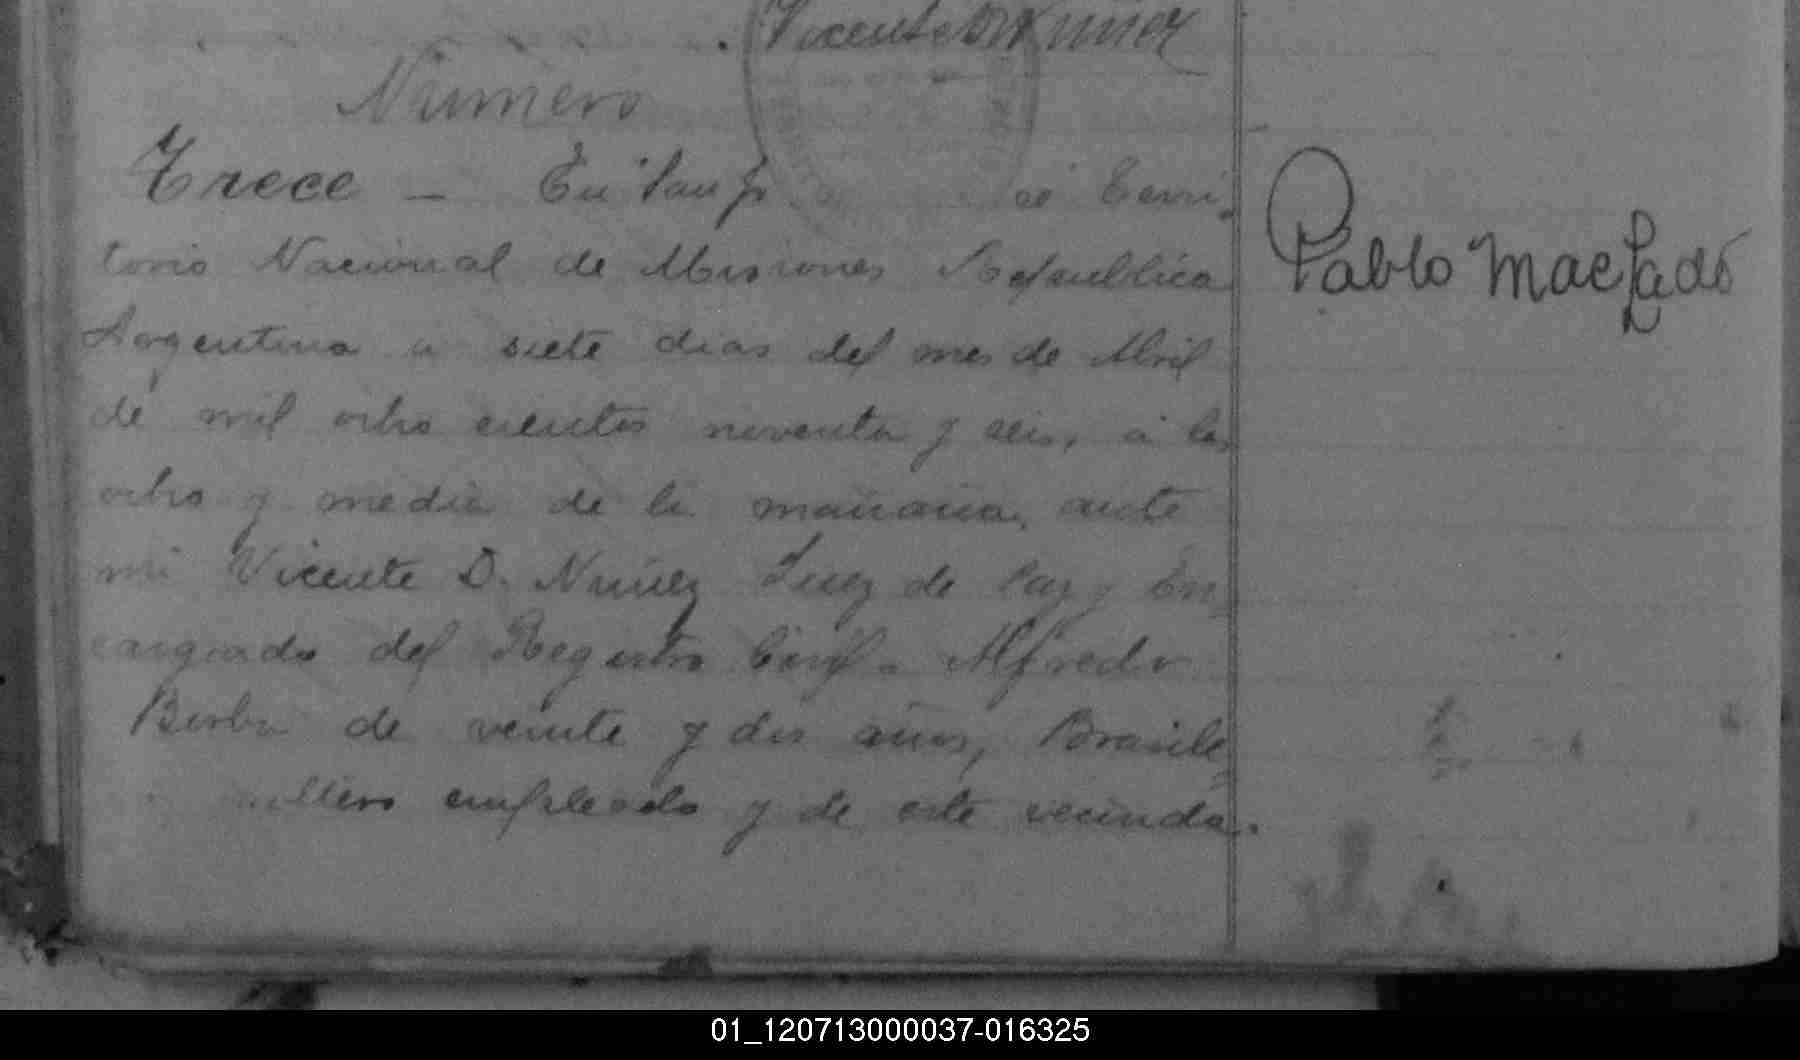 Vicente D. Nuñez
Número
Trece — En San J
Terri-
torio Nacional de Misiones Republica
Argentina a siete dias del mes de Abril
de mil ocho cientos noventa y seis, á las
ocho y media de la mañana, ante
mi Vicente D. Nuñez Juez de Paz y En-
cargado del Registro Civil. Alfredo
de veinte y dos años, Brasile-
empleado y de este vecinda-
Pablo Machado
01_120713000037-016325